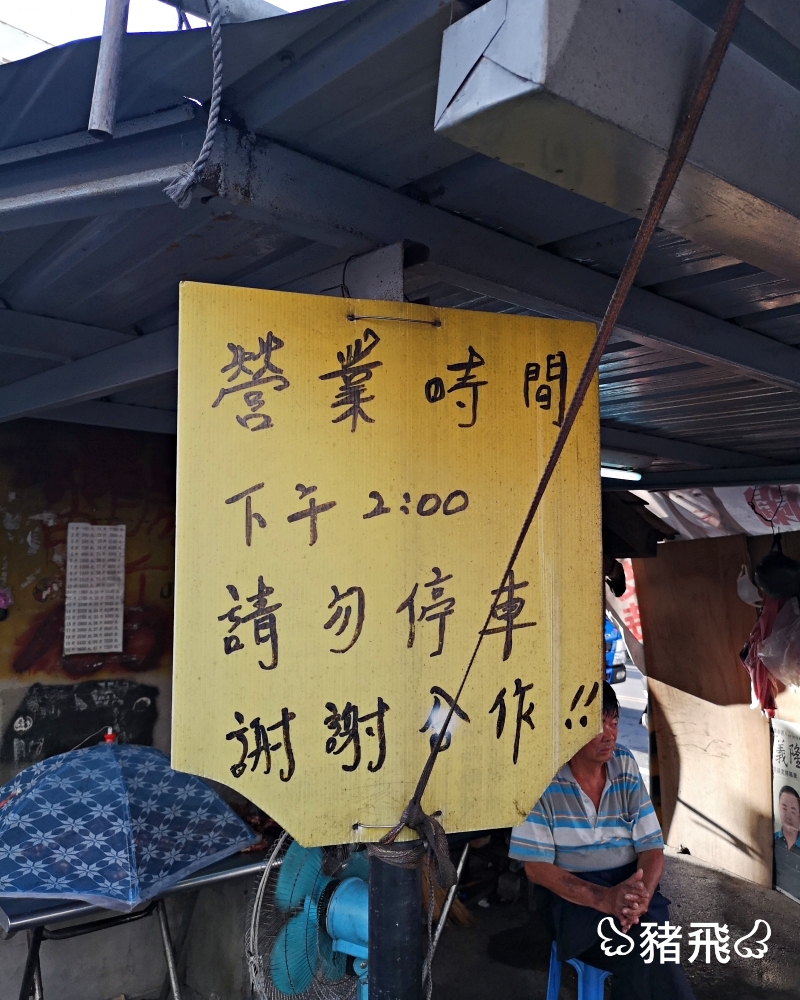 營業時間
下午 2:00
請勿停車
謝謝合作!!
義隆
豬飛